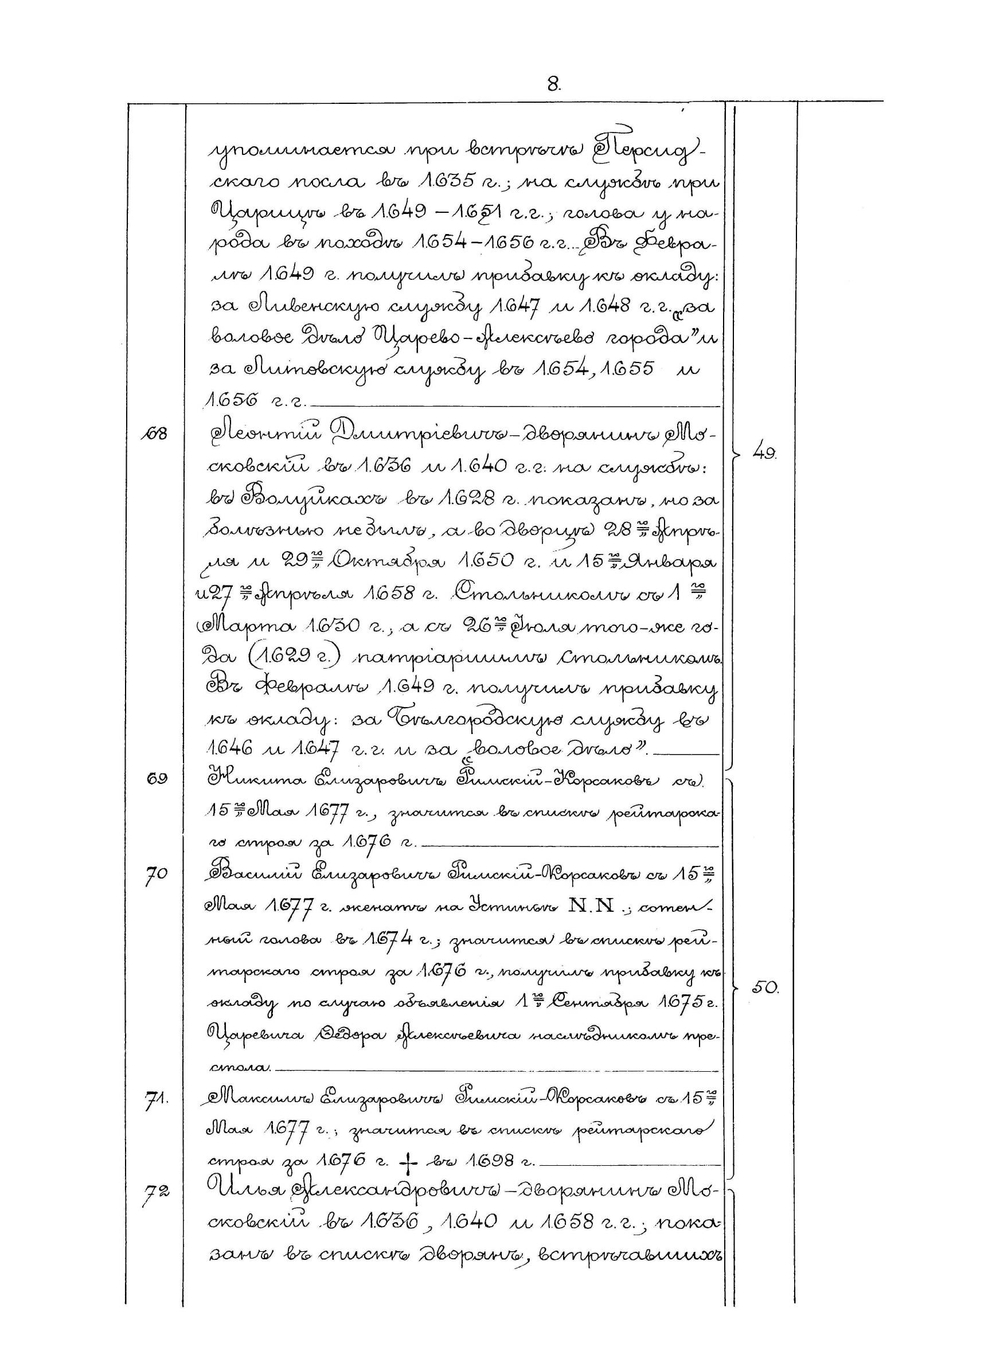 8.
упоминается при встрѣчѣ Персид-
скаго посла въ 1635 г.; на службѣ при
Царицѣ въ 1649 – 1651 г.г.; голова у на-
рода въ походѣ 1654 – 1656 г.г... Въ Февра-
лѣ 1649 г. получилъ прибавку къ окладу:
за Ливенскую службу 1647 и 1648 г.г. „за
валовое дѣло Царево-Алексѣево города" и
за Литовскую службу въ 1654, 1655 и
1656 г.г.
68 Леонтій Дмитріевичъ – дворянинъ Мо-
сковскій въ 1636 и 1640 г.г. на службѣ: 49.
въ Волуйкахъ въ 1628 г. показанъ, но за
болѣзнью не былъ, а во дворцѣ 28го Апрѣ-
ля и 29го Октября 1650 г. и 15го Января
и 27го Апрѣля 1658 г. Стольникомъ съ 1го
Марта 1630 г., а съ 26го Іюля того-же го-
да (1629 г.) патріаршимъ стольникомъ.
Въ Февралѣ 1649 г. получилъ прибавку
къ окладу: за Бѣлгородскую службу въ
1646 и 1647 г.г. и за „валовое дѣло".
69 Никита Елизаровичъ Римскій-Корсаковъ съ
15го Мая 1677 г., значится въ спискѣ рейтарска-
го строя за 1676 г.
70 Василій Елизаровичъ Римскій-Корсаковъ съ 15го
Мая 1677 г. женатъ на Устиньѣ N.N.; сотен-
ный голова въ 1674 г.; значится въ спискѣ рей-
тарскаго строя за 1676 г., получилъ прибавку къ
окладу по случаю объявленія 1го Сентября 1675 г. 50.
Царевича Ѳедора Алексѣевича наслѣдникомъ пре-
стола.
71. Максимъ Елизаровичъ Римскій-Корсаковъ съ 15го
Мая 1677 г.; значится въ спискѣ рейтарскаго
строя за 1676 г. + въ 1698 г.
72 Илья Александровичъ – дворянинъ Мо-
сковскій въ 1636, 1640 и 1658 г.г.; пока-
занъ въ спискѣ дворянъ, встрѣчавшихъ